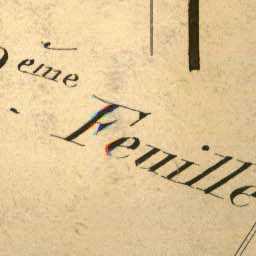 eme Feuille